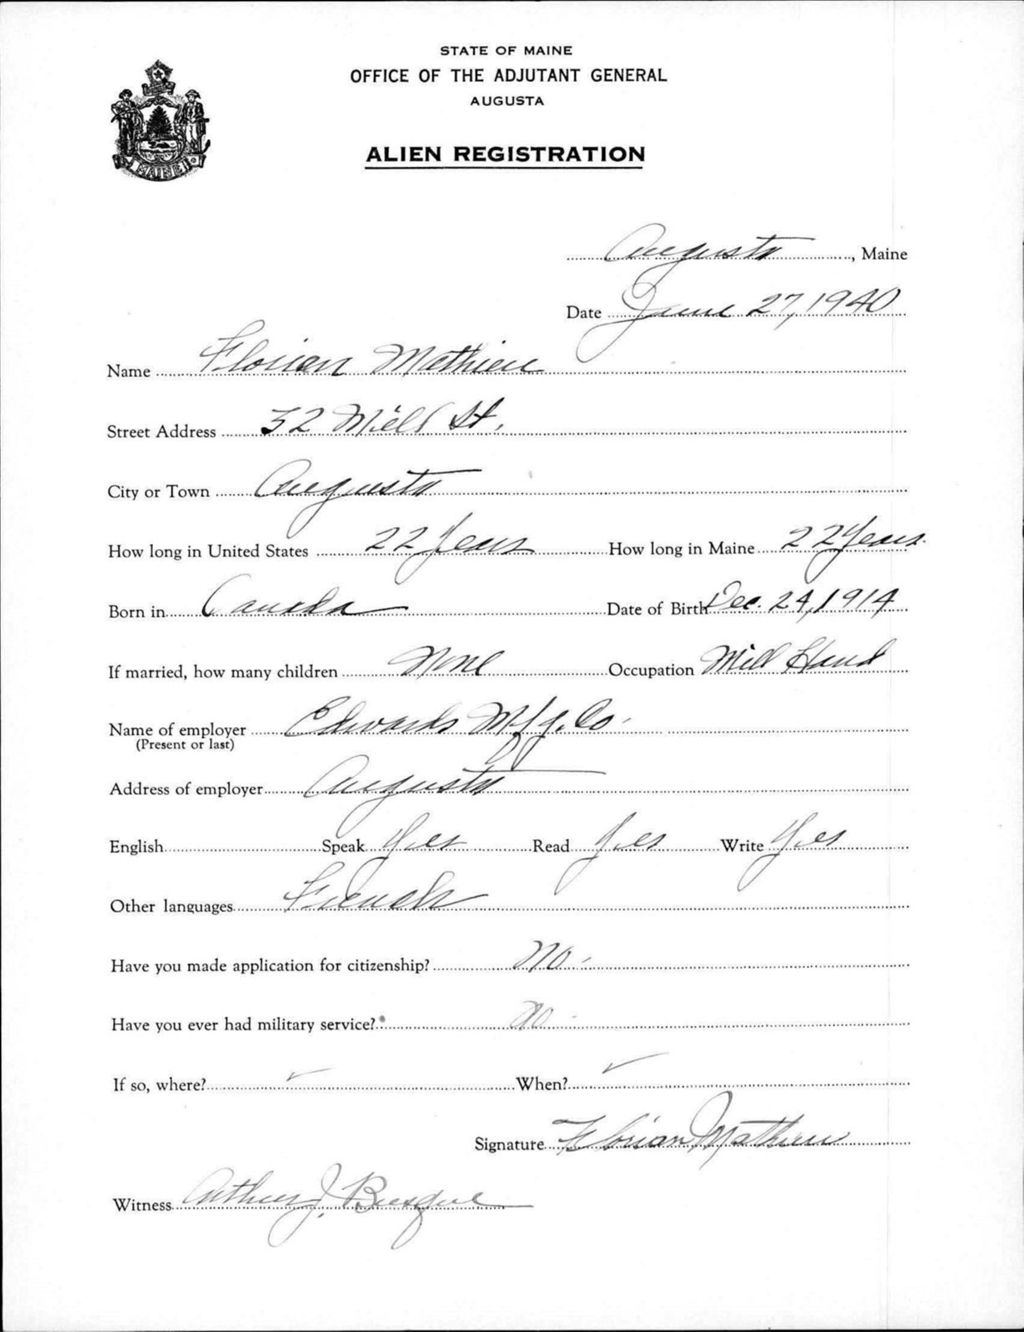 STATE OF MAINE
OFFICE OF THE ADJUTANT GENERAL
AUGUSTA
ALIEN REGISTRATION
MAINE
Augusta, Maine
Date June 27, 1940
Name Florian Mathieu
Street Address 32 Mill St.
City or Town Augusta
How long in United States 22 Years How long in Maine 22 Years
Born in Canada Date of Birth Dec. 24, 1914
If married, how many children None Occupation Mill Hand
Name of employer Edwards Mfg. Co.
(Present or last)
Address of employer Augusta
English Speak Yes Read Yes Write Yes
Other languages French
Have you made application for citizenship? No
Have you ever had military service? No
If so, where? When?
Signature Florian Mathieu
Witness Arthur J.